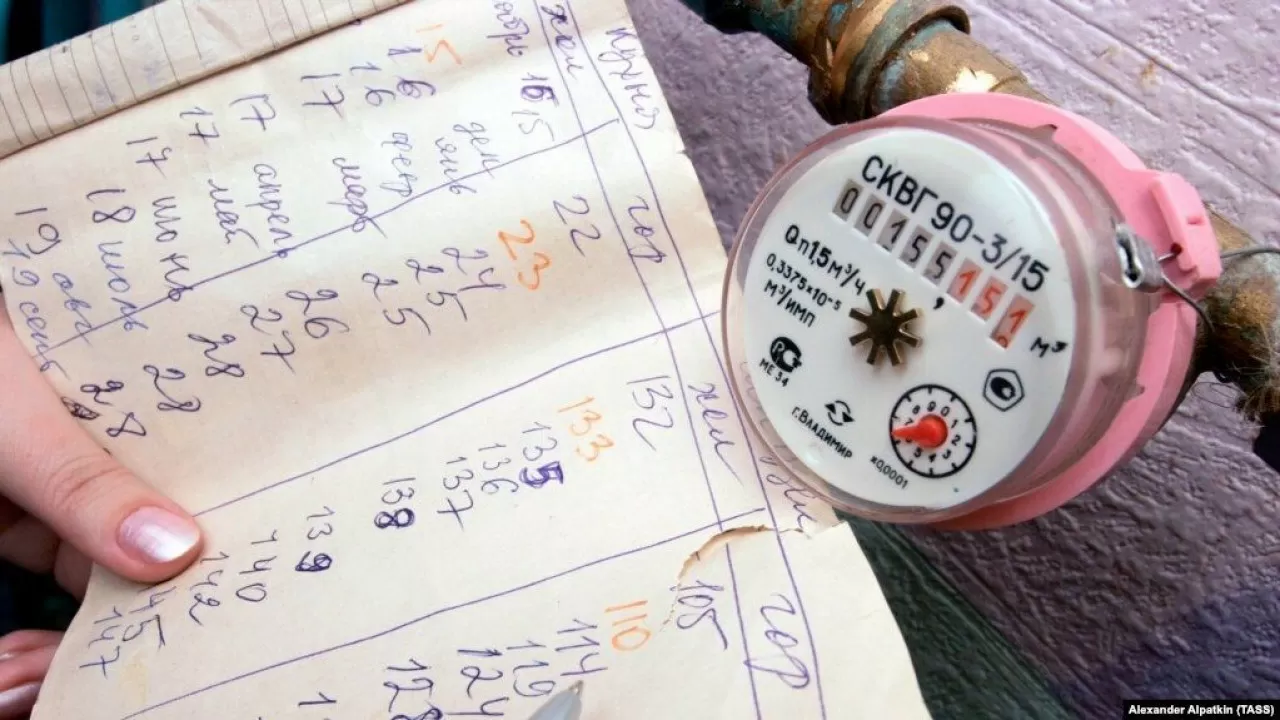 кухня
хол гор хол гор
15 22 132 105
15 23 133 110
16 дек 24 135 114
16 янь 25 136 119
февр 25 137 124
17 март 26 138 128
17 апрель 27 139
17 май 28 140
17 июнь 28 142
18 июль 28 145
19 авг 147
19 сент
СКВГ90-3/15
00155151 м³
Qn1,5м³/ч
0,3375*10⁻⁵
м³/имп
МЕ 34
г.Владимир
x0,0001
Alexander Alpatkin (TASS)